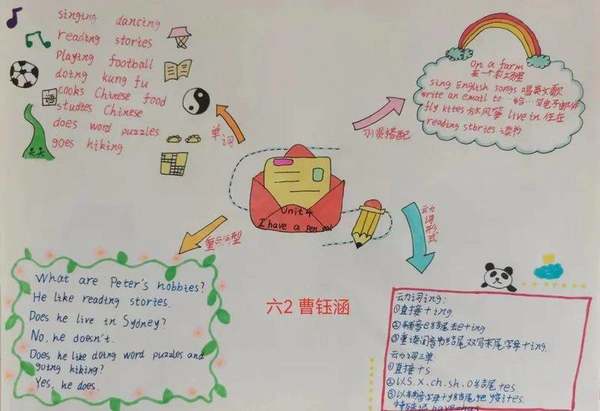 singing dancing
reading stories
playing football
doing kung fu
cooks Chinese food
studies Chinese
does word puzzles
goes hiking
单词
on a farm
在一个农场里
sing English songs 唱英文歌
write an email to
fly kites 放风筝 live in 住在
reading stories 读书
Unit 4
I have a pen pal
重点句型
动词形式
六2 曹钰涵
What are Peter's hobbies?
He like reading stories.
Does he live in Sydney?
No, he doesn't.
Does he like doing word puzzles and
going hiking?
Yes, he does.
动词ing:
①直接+ing
动词三单
①直接+s
②以s.x.ch.sh.o结尾+es